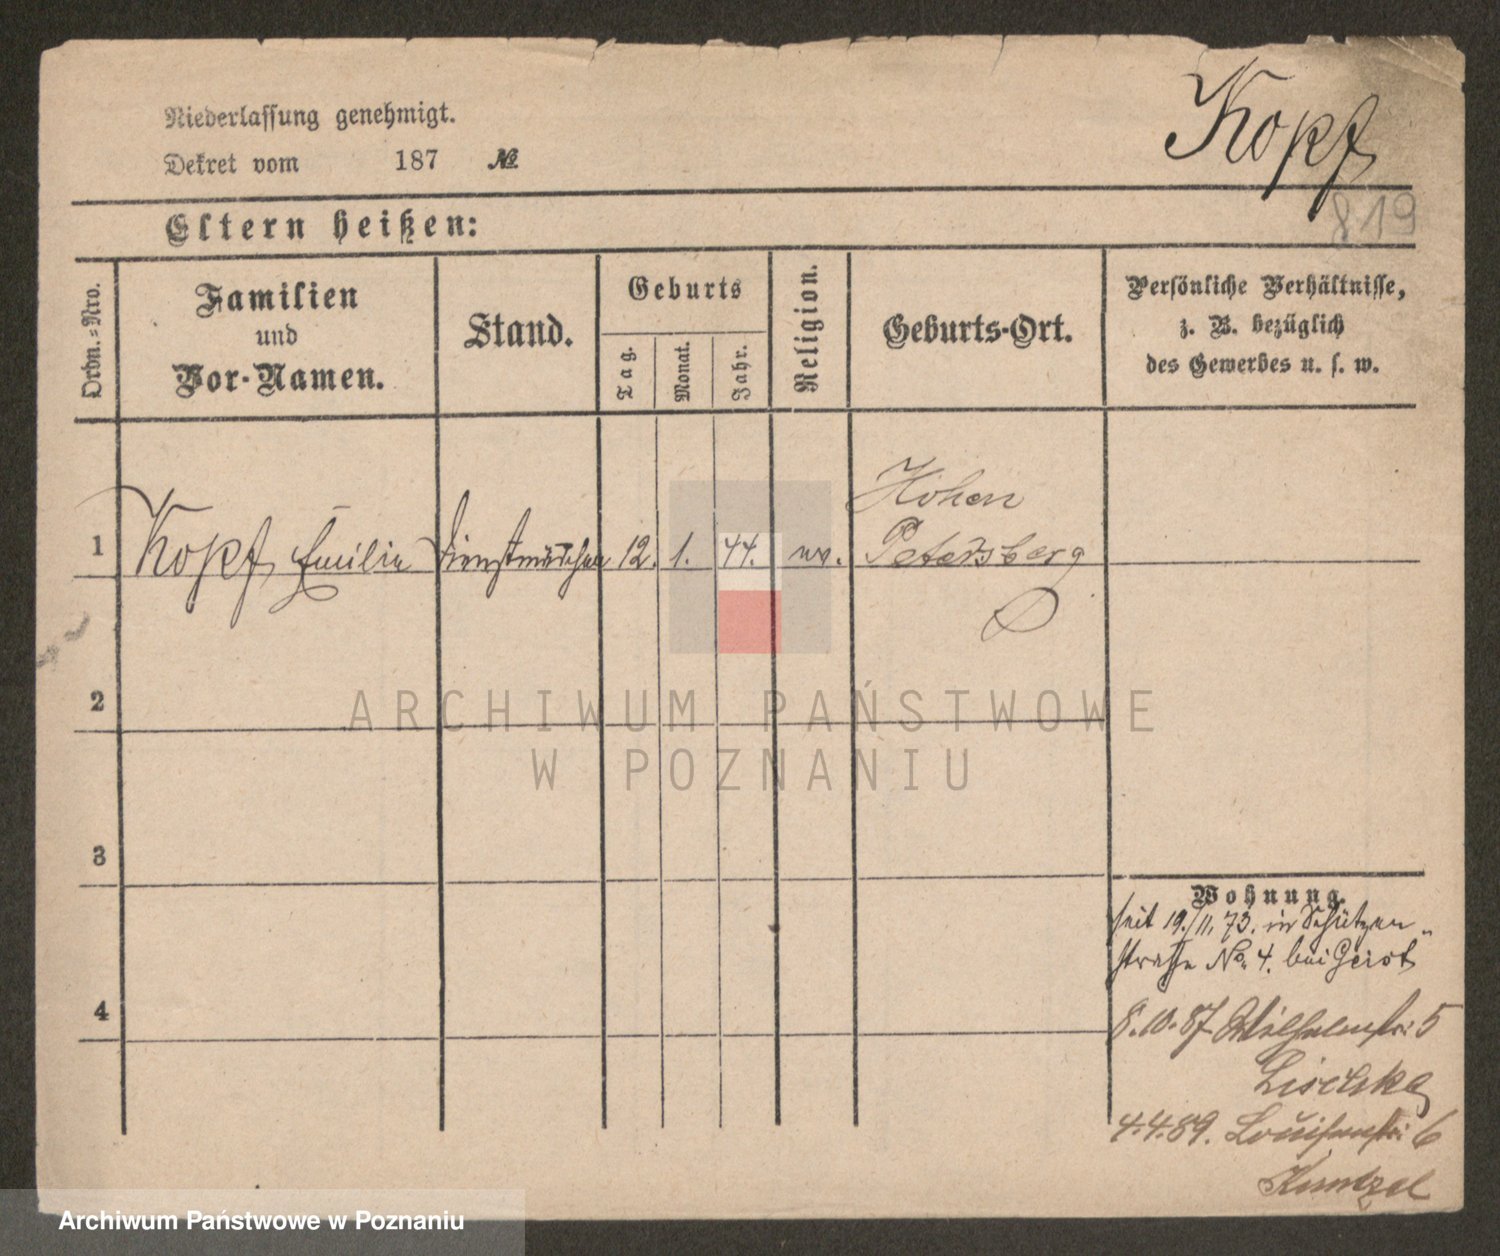 Niederlassung genehmigt.
Dekret vom 187 №
Kopf
819
Eltern heißen:
Ordn.=Nro.
Familien
und
Vor-Namen.
Stand.
Geburts
Tag.
Monat.
Jahr.
Religion.
Geburts-Ort.
Persönliche Verhältnisse,
z. B. bezüglich
des Gewerbes u. s. w.
1
Kopf Emilie
Dienstmädchen
12. 1. 44.
ev.
Hohen
Petersberg
2
3
4
Wohnung.
seit 19./11. 73. in Schützen
strasse No. 4. bei Geist
8.10.87 Wilhelmstr: 5
Lischka
4.4.89. Louisenstr: 6
Kuntzel
ARCHIWUM PAŃSTWOWE
W POZNANIU
Archiwum Państwowe w Poznaniu